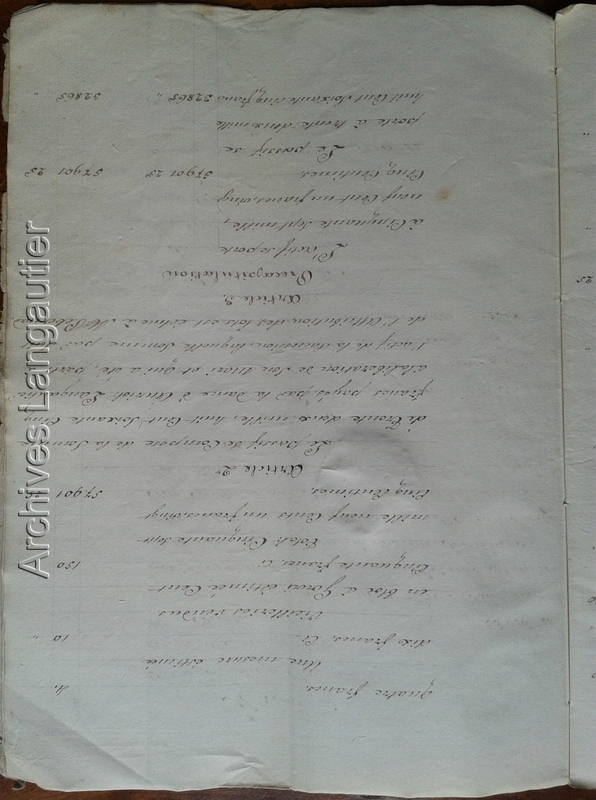 quatre francs. 4.
Une mesure estimée
dix francs. Ci 10 "
Vieilleries vendues
en bloc à Gouri estimé Cent
Cinquante francs. Ci 150
Total: Cinquante sept
mille neuf Cents un francs vingt
Cinq Centimes. 57901 25
Article 2e
Le Passif se Compose de la Somme
de Trente deux mille, huit Cent Soixante Cinq
francs payés par la Dame d'Autriat Langautier
à la libération de son Mari et qui a été, partie,
l'actif de la Succession, laquelle Somme par
de l'Attribution des lots est échue à Mr
Article 3.
Recapitulation
L'actif se porte
à Cinquante Sept mille,
neuf Cent un francs vingt
Cinq Centimes. 57901 25 57901 25
Le passif se
porte à trente deux mille
huit Cent Soixante Cinq francs 32865 " 32865 "
25
Archives Langautier